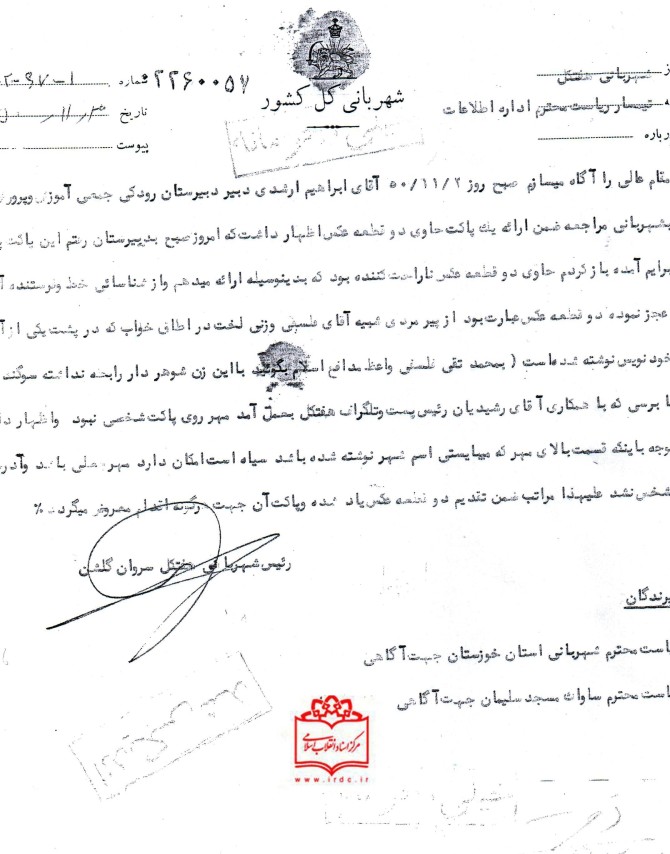 شهربانی کل کشور
شماره ۱-۹۷-
۲۲۶۰۰۵۷
تاریخ
پیوست
شهربانی هفتکل
تیمسار ریاست محترم اداره اطلاعات
رباره
مقام عالی را آگاه میسازم صبح روز ۵۰/۱۱/۲ آقای ابراهیم ارشدی دبیر دبیرستان رودکی جمعی آموزش وپرور
بشهربانی مراجعه ضمن ارائه یک پاکت حاوی دو قطعه عکس اظهار داشت که امروز صبح بدبیرستان رفتم این پاکت
برایم آمده باز کردم حاوی دو قطعه عکس ناراحت کننده بود که بدینوسیله ارائه میدهم واز شناسائی خط ونویسنده
عجز نموده دو قطعه عکس عبارت بود از پیر مردی شبیه آقای فلسفی وزنی لخت در اطاق خواب که در پشت یکی از
خود نویس نوشته شده است ( بمحمد تقی فلسفی واعظ مدافع اسلام بگوئید بااین زن شوهر دار رابطه نداشته سوگند
با برسی که با همکاری آقای رشیدیان رئیس پست وتلگراف هفتکل بعمل آمد مهر روی پاکت شخصی نبود واظهار دا
وجه باینکه قسمت بالای مهر که میبایستی اسم شهر نوشته شده باشد سیاه است امکان دارد مهر محلی باشد وآدر
شخص نشد علیهذا مراتب ضمن تقدیم دو قطعه عکس یاد شده وپاکت آن جهت هرگونه اقدام معروض میگردد %
رئیس شهربانی هفتکل سروان گلشن
یرندگان
است محترم شهربانی استان خوزستان جهت آگاهی
است محترم ساواک مسجد سلیمان جهت آگاهی
مرکز اسناد انقلاب اسلامی
www.irdc.ir